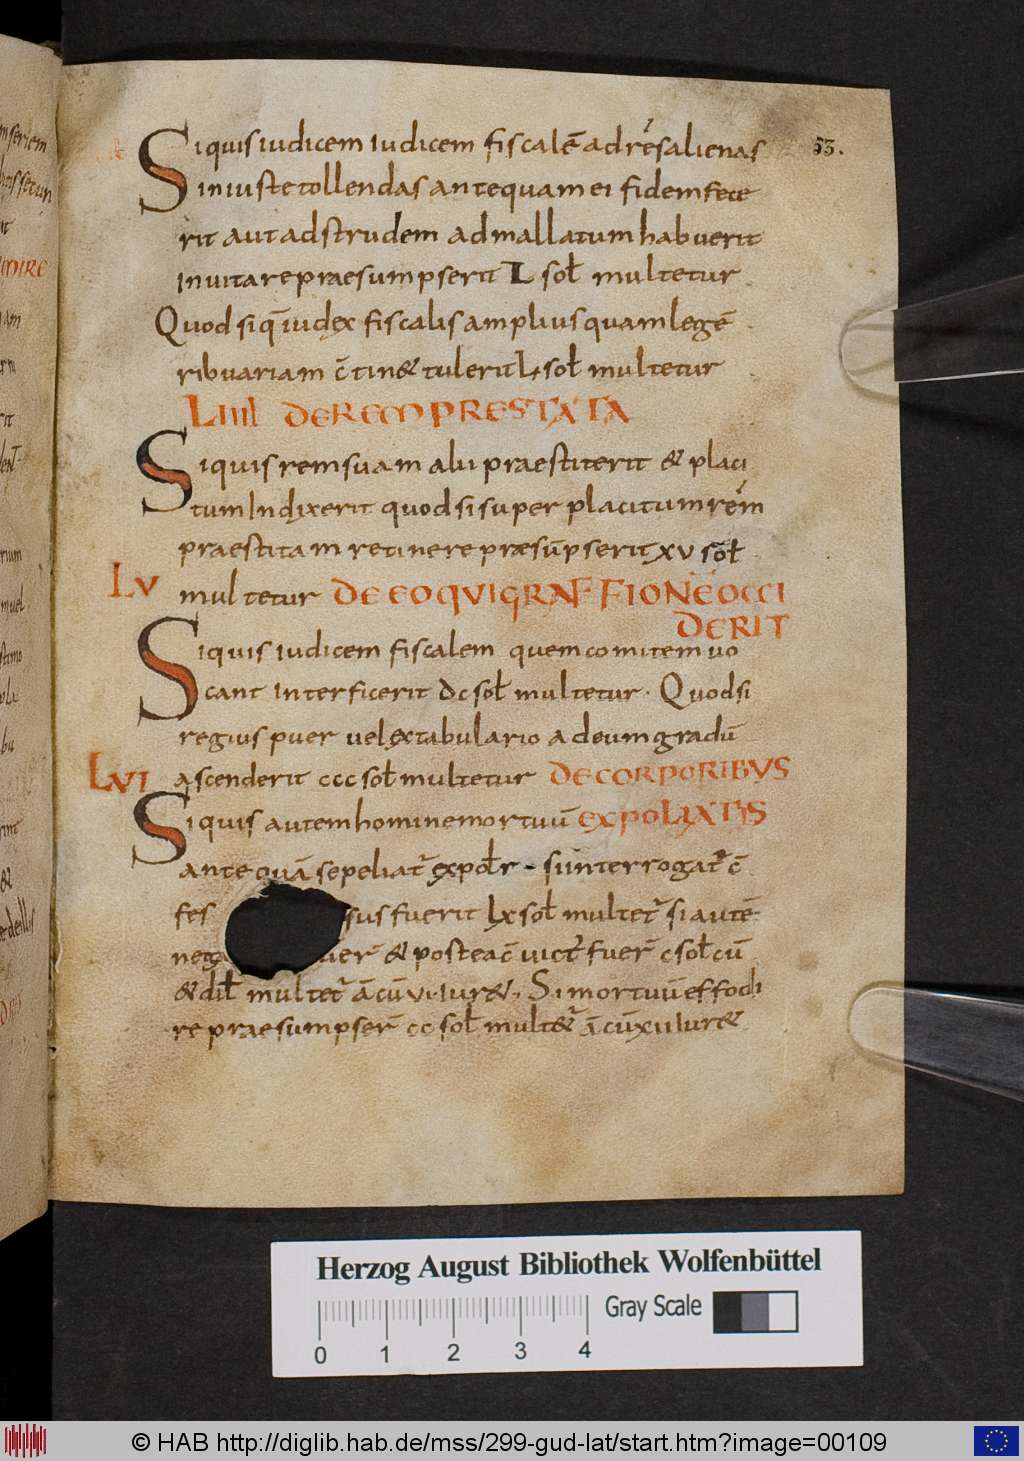 Siquis iudicem Iudicem fiscalē ad res alienas
53.
iniuste tollendas antequam ei fidem fece
rit aut adstrudem ad mallatum habuerit
inuitare praesumpserit L sol multetur
Quod si q̄ iudex fiscalis amplius quam legē
ribuariam c̄tin& tulerit L, sol multetur
LIIII DEREM PRESTATA
Siquis rem suam alii praestiterit & placi
tum Indixerit quod si super placitum rem
praestitam retinere praesūpserit xv sol
LV multetur DE EO QVI GRAFFIONE OCCI
DERIT
Siquis iudicem fiscalem quem comitem uo
cant interficerit dc sol multetur. Quod si
regius puer uel ex tabulario ad eum gradū
LVI ascenderit ccc sol multetur DE CORPORIBVS
Siquis autem hominem mortuū EXPOLIATIS
antequā sepeliat expol̄r - si interrogat c̄
fes sus fuerit lx sol multet si autē
neg uer & postea c̄uict fuer̄ c sol cū
& dil multet ācū vi. Iur&. Si mortuū effodi
re praesumpser̄ cc sol mult& ācū xii Iur&
Herzog August Bibliothek Wolfenbüttel
Gray Scale
0 1 2 3 4
© HAB http://diglib.hab.de/mss/299-gud-lat/start.htm?image=00109